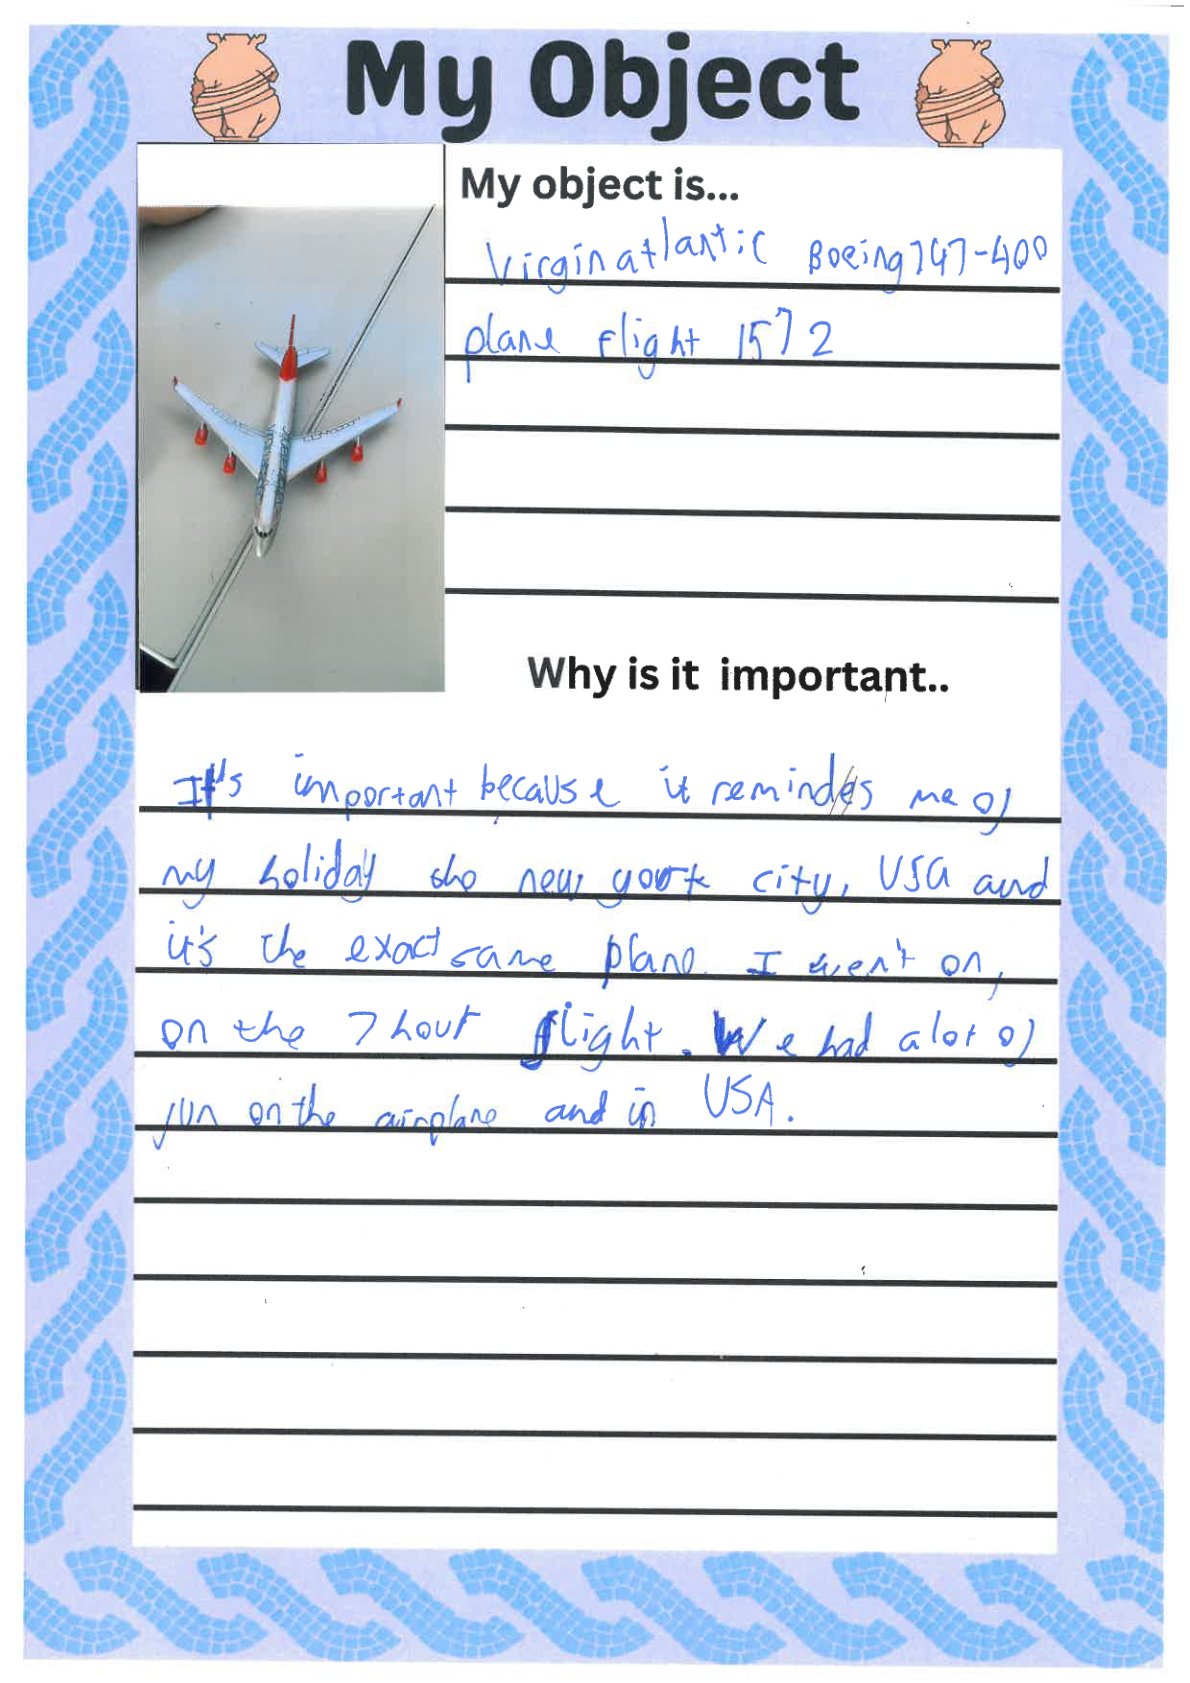 My Object
My object is...
Virgin atlantic Boeing 747-400
plane flight 1572
Why is it important..
It's important because it reminds me of
my holiday tho new york city, USA and
it's the exact same plane I went on,
on the 7 hour flight. We had a lot of
fun on the airplane and in USA.